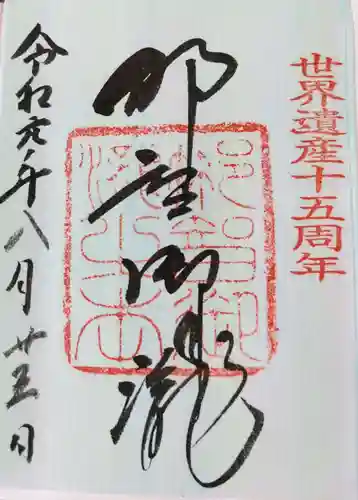 世界遺産十五周年
那智御瀧
令和元年八月廿五日